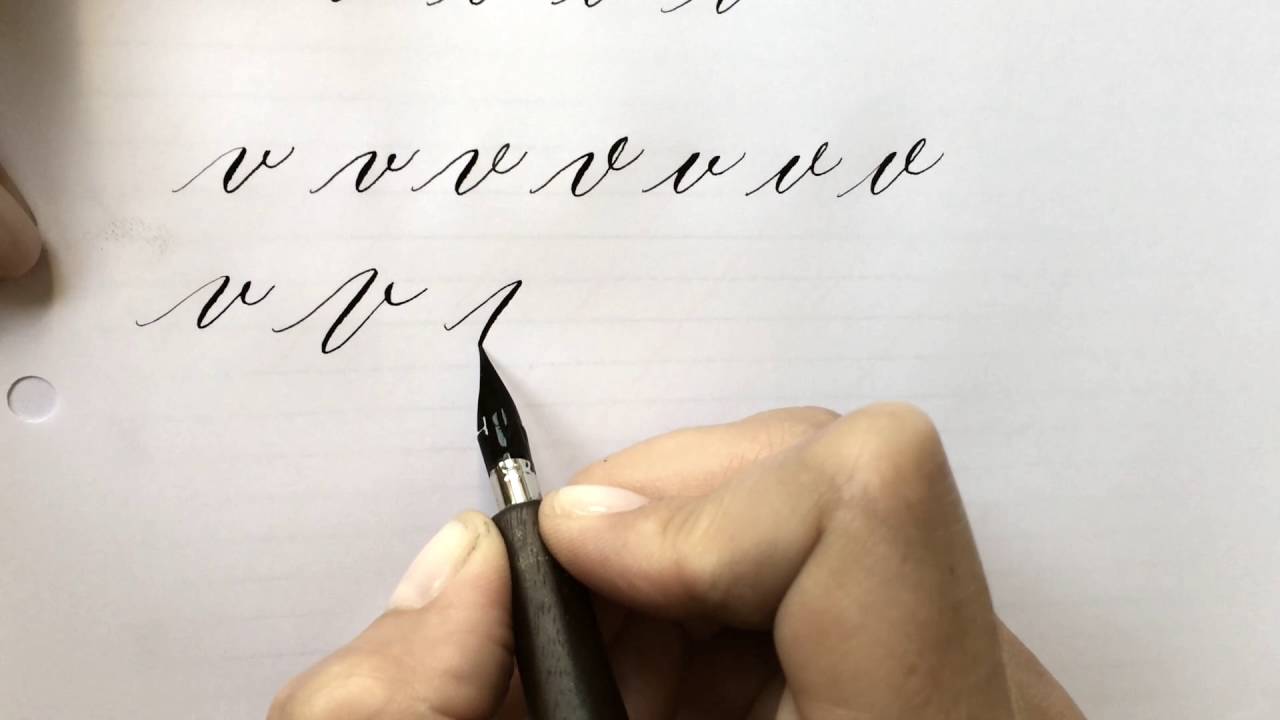 v v v v v v v
v v